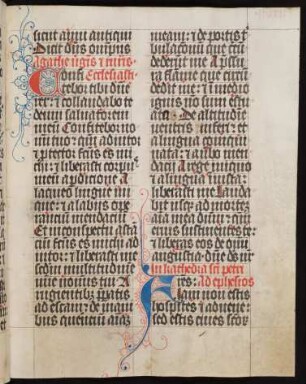 sicut anni antiqui
Dicit dn̄s om̄nps
Agathe v̓gis et mr̄is
Confi Ecclesiasti
tebor tibi dn̄e
rex et collaudabo te
deum saluatorem
meum Confitebor no
mini tuo: qm̄ adiutor
et p̄tector fc̄us es mi
chi: et liberasti corpus
meum a p̄ditione A
laqueo lingue ini
que: et a labijs ope
rantium mendacium
Et in conspectu astan
tium fc̄us es michi ad
iutor: et liberasti me
scd̄m multitudinem
mīe nominis tui A
rugientibꝫ p̄paratis
ad escam: de manibꝫ
querentium aīaꝫ
meam: et de portis t̓
bulationum que circū
dederūt me A pressu
ra flamme que circū
dedit me: et in medio
ignis nō sum estu
ata De altitudine
ventris inferi: et a
lingua coinqui
nata: et a verbo men
dacij A rege iniquo
et a lingua iniusta:
liberasti me Lauda
bit vsqꝫ ad mortem
aīa mea dn̄m: qm̄
eruis sustinentes te:
et liberas eos de manu
angustie dn̄e ds̄ nr̄
In kathedra sc̄i petri
Ad ephesios
Fr̄es:
Iam non estis
hospites et aduene:
sed estis ciues sc̄oꝝ